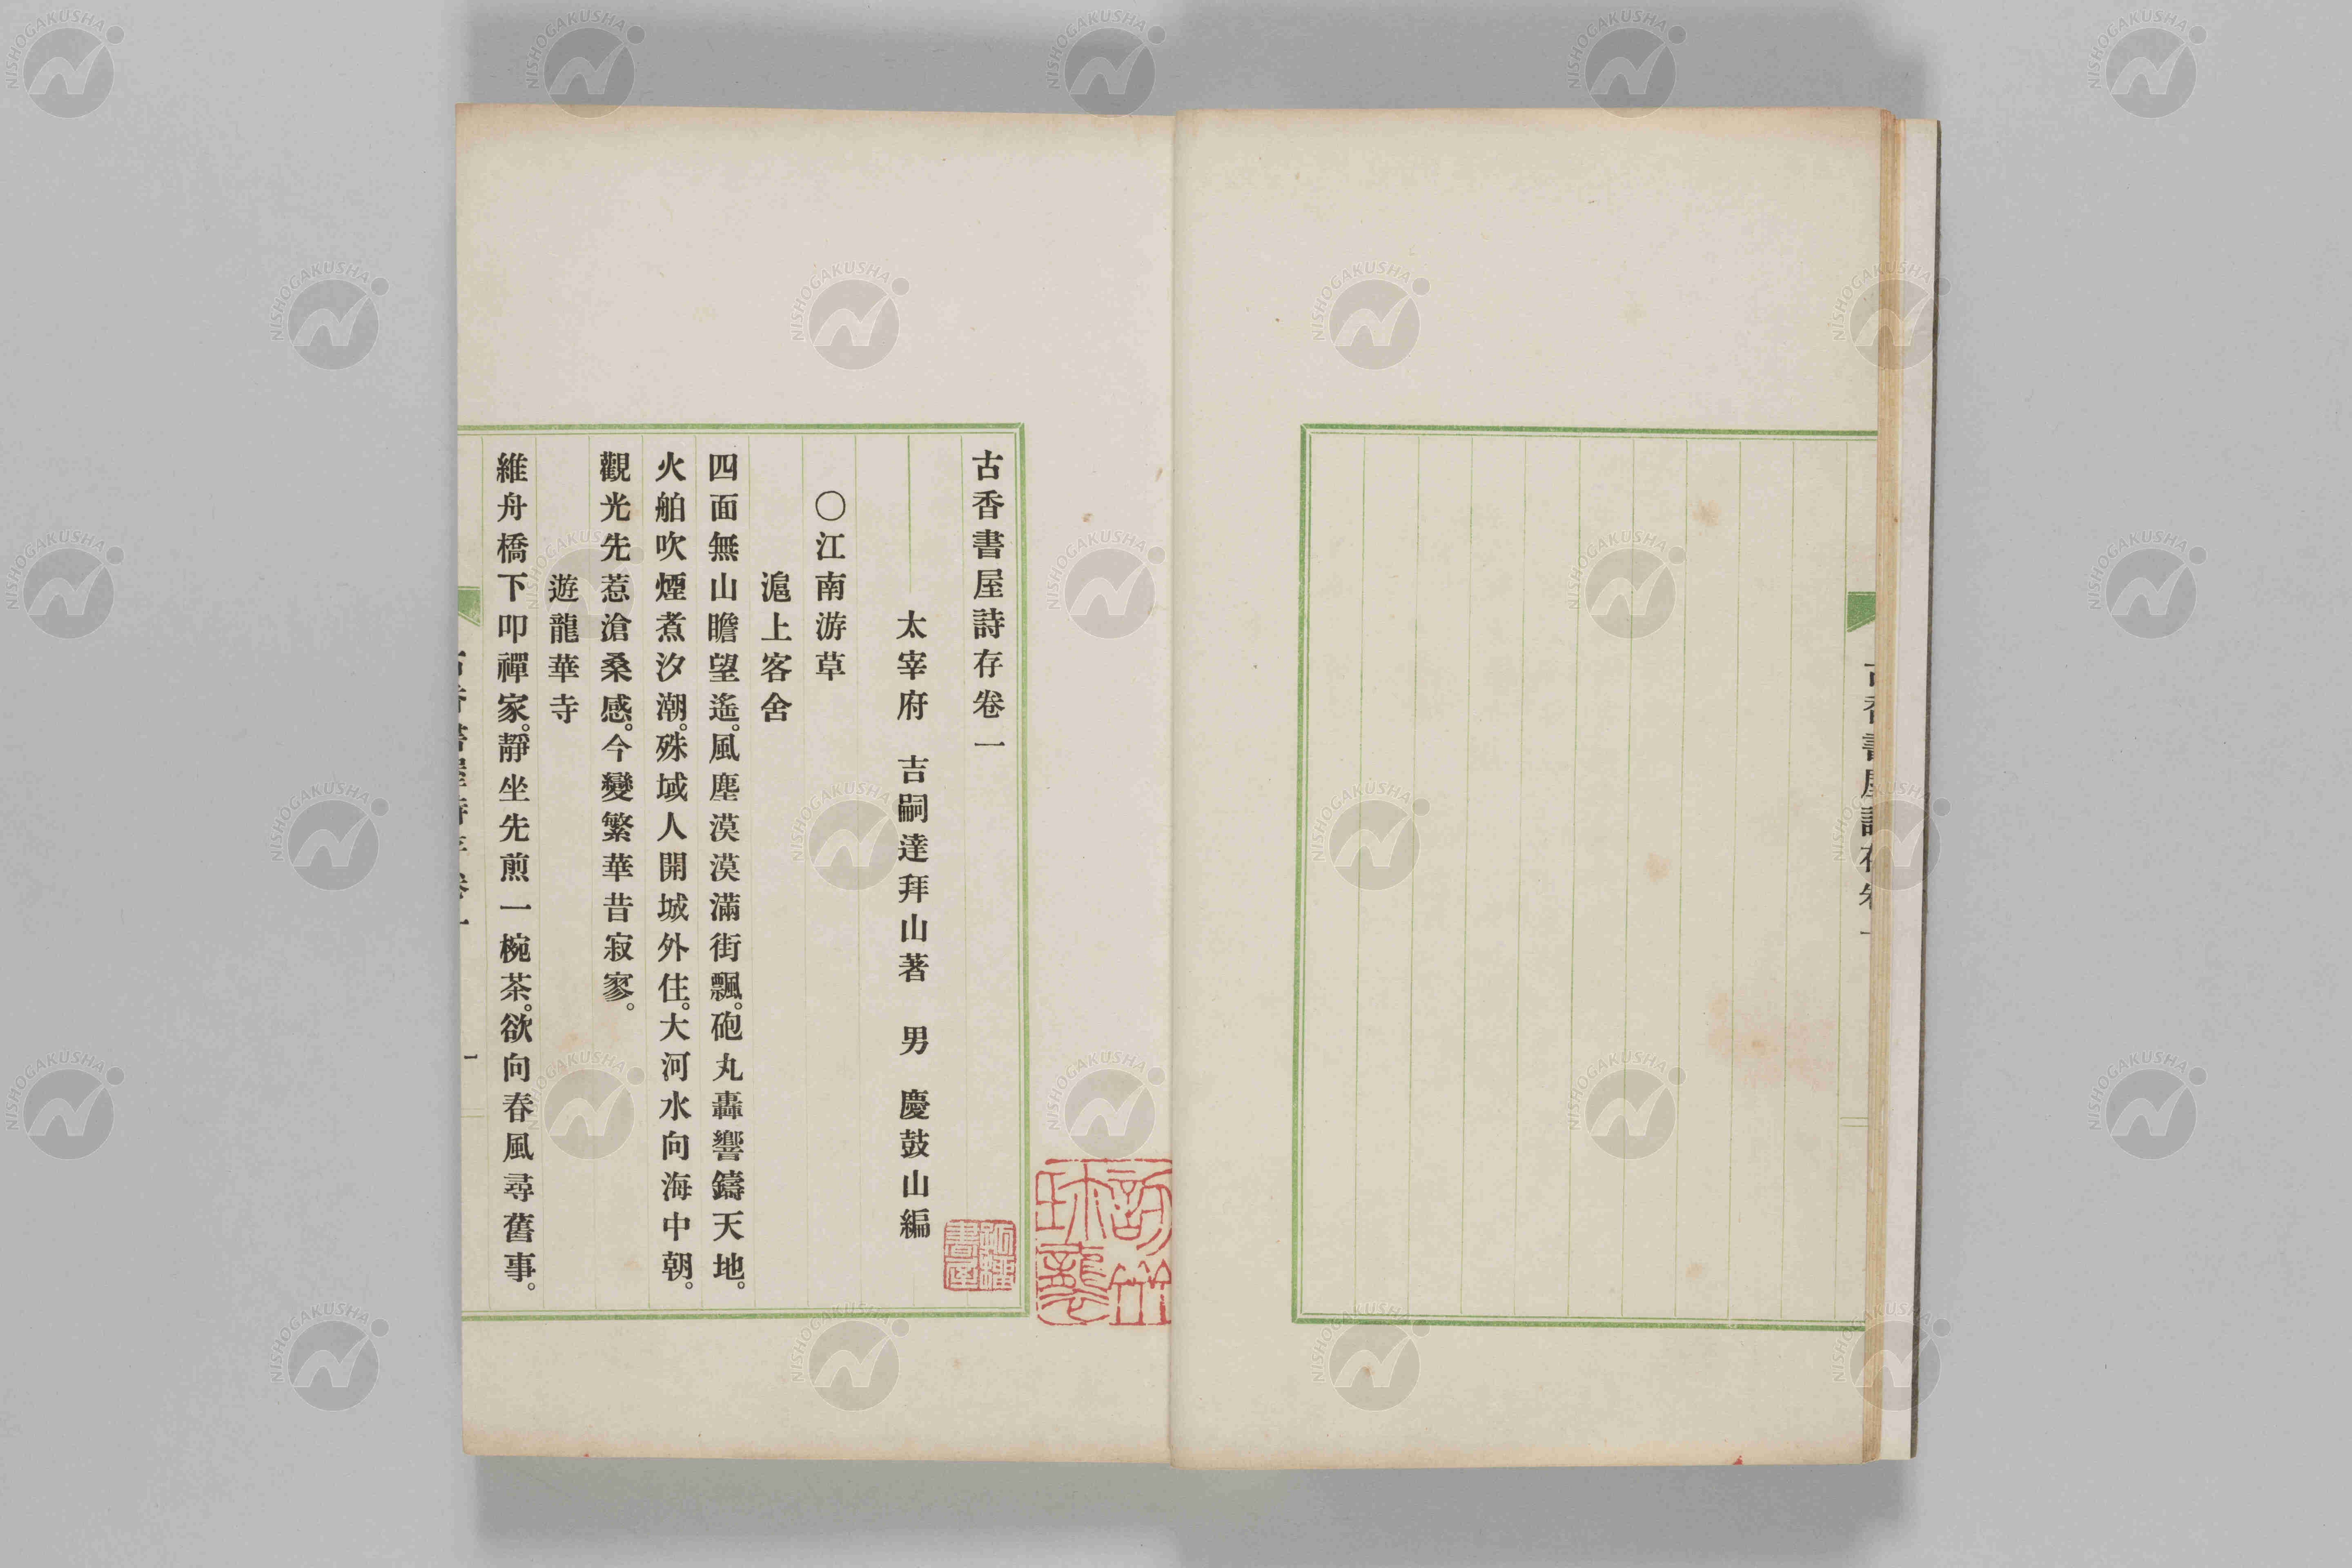 古香書屋詩存卷一
太宰府　吉嗣達拜山著　男　慶鼓山編
〇江南游草
滬上客舍
四面無山瞻望遙。風塵漠漠滿街飄。砲丸轟響鑄天地。
火舶吹煙煮汐潮。殊域人開城外住。大河水向海中朝。
觀光先惹滄桑感。今變繁華昔寂寥。
遊龍華寺
維舟橋下叩禪家。靜坐先煎一椀茶。欲向春風尋舊事。
古香書屋詩存卷一
一
古香書屋詩存卷一
NISHOGAKUSHA